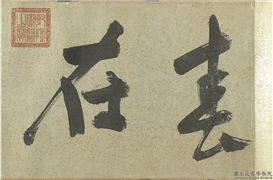 春在
國立故宮博物院